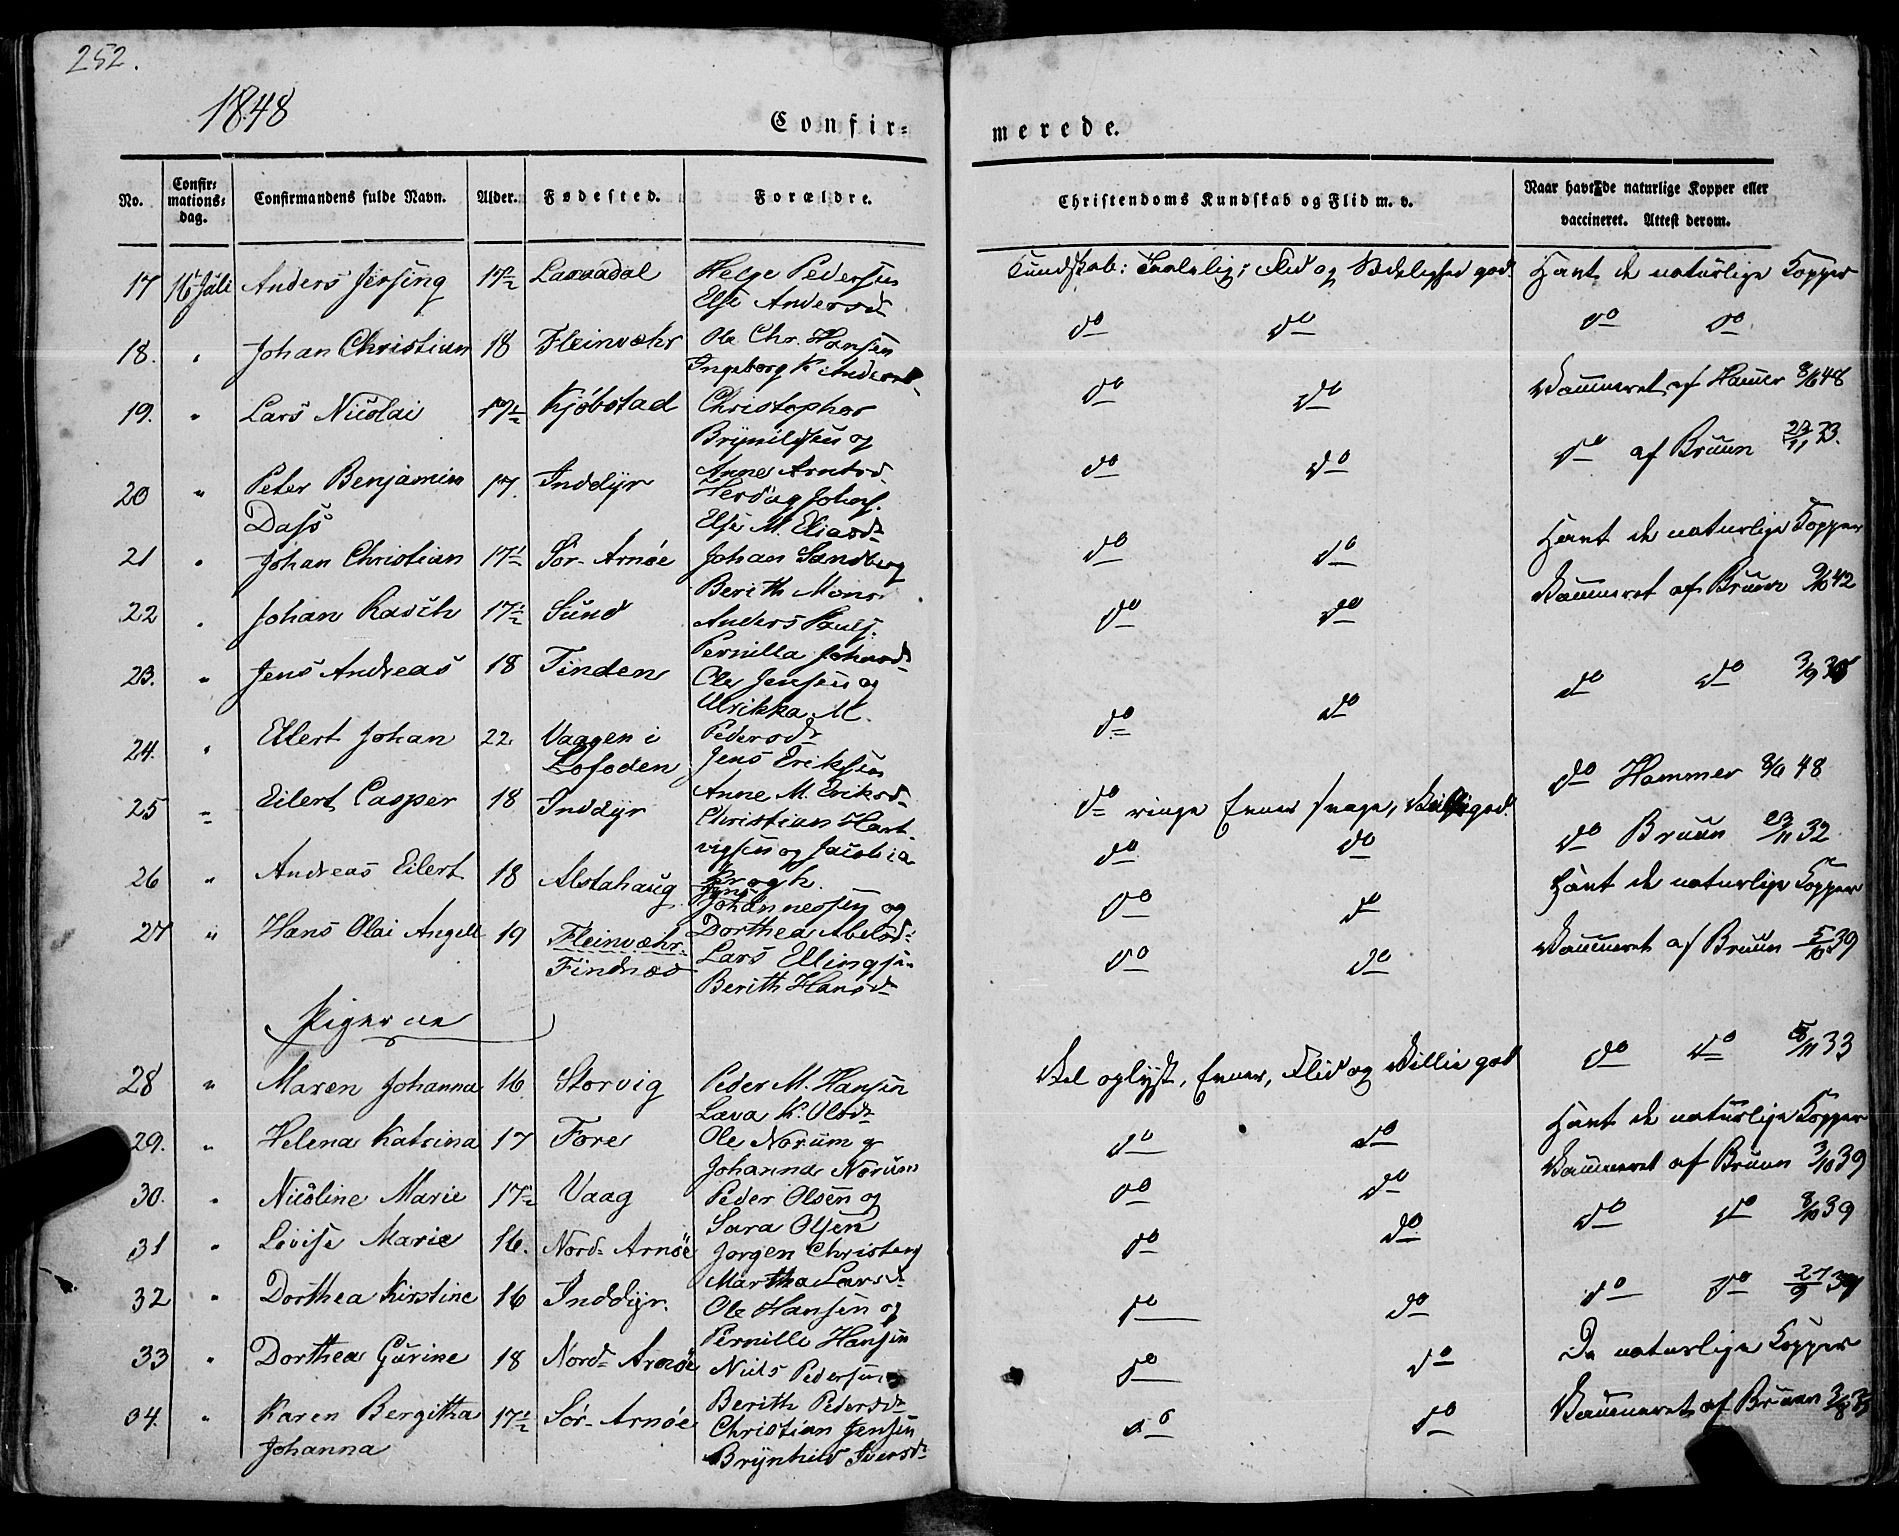 252.
1848
Confir=
merede.
No.
Confir=
mations=
dag.
Confirmandens fulde Navn.
Alder.
Fødested.
Forældre.
Christendoms Kundskab og Flid m. v.
Naar havt de naturlige Kopper eller
vaccineret. Attest derom.
17 16 Juli Anders Jessing 17½ Helge Pedersen Kundskab: Taalelig; Flid og god. Havt de naturlige Kopper
Else Andersd
18. " Johan Christian 18 Fleinvæhr Ole Chr. Hansen do do do do
Ingeborg K. Andersd
19. " Lars Nicolai Kjøbstad Christopher do do Vaccineret af Hamer 8/6 48
Brynildsen og
Anne Arntsd
20 " Peter Benjamin 17. Inddyr Johans. do do do af Bruun 23.
Dass Else M. Eliasd
21 " Johan Christian 17½ Sør-Arnøe Johan Sandberg do do Havt de naturlige Kopper
Berith Mons
22 " Johan Rasch 17½ Sund Anders Pauls. do do Vaccineret af Bruun 42
Pernilla Johnsd
23. " Jens Andreas 18 Tinden Ole Jensen og do do do do
Ulrikka M.
Pedersd
24. " Ellert Johan 22. Vaagen i Jens Eriksen do ringe Evner svage, god. do Hammer 8/6 48
Lofoden Anne M. Eriksd
25 " Eilert Casper 18 Inddyr Christian Hart- do do do Bruun 32
vigsen og Jacobia
Krogh.
26 " Andreas Eilert 18 Alstahaug Jens do do Havt de naturlige Kopper
Johannesen og
Dorthea Abelsd
27 " Hans Olai Angell 19 Fleinvæhr. Lars Ellingsen do do Vaccineret af Bruun 5/10 39
Findnæs Berith Hansd
Pigerne
28 " Maren Johanna 16 Storvig Peder M. Hansen Vel oplyst, Evner, Flid og Villie god do do 33
K. Olsd
29. " Helena Katrina 17 Fore Ole Norum og do do Havt de naturlige Kopper
Johanna Norum
30. " Nicoline Marie 17½ Vaag Peder Olsen og do do Vaccineret af Bruun 3/10 39
Sara Olsen
31 " Lovise Marie 16. Nord-Arnøe Jørgen Christens do do do do 8/10 39
Martha Larsd
32 " Dorthea Kirstine 16 Inddyr. Ole Hansen og do do do do 27/9
Pernille Hansen
33 " Dorthea Gurine 18 Nord-Arnøe Niels Pedersen do do De naturlige Kopper
Berith Pedersd
34. " Karen Bergitha 17½ Sør-Arnøe Christian Jensen do do Vaccineret af Bruun
Johanna Brynhild Iversd